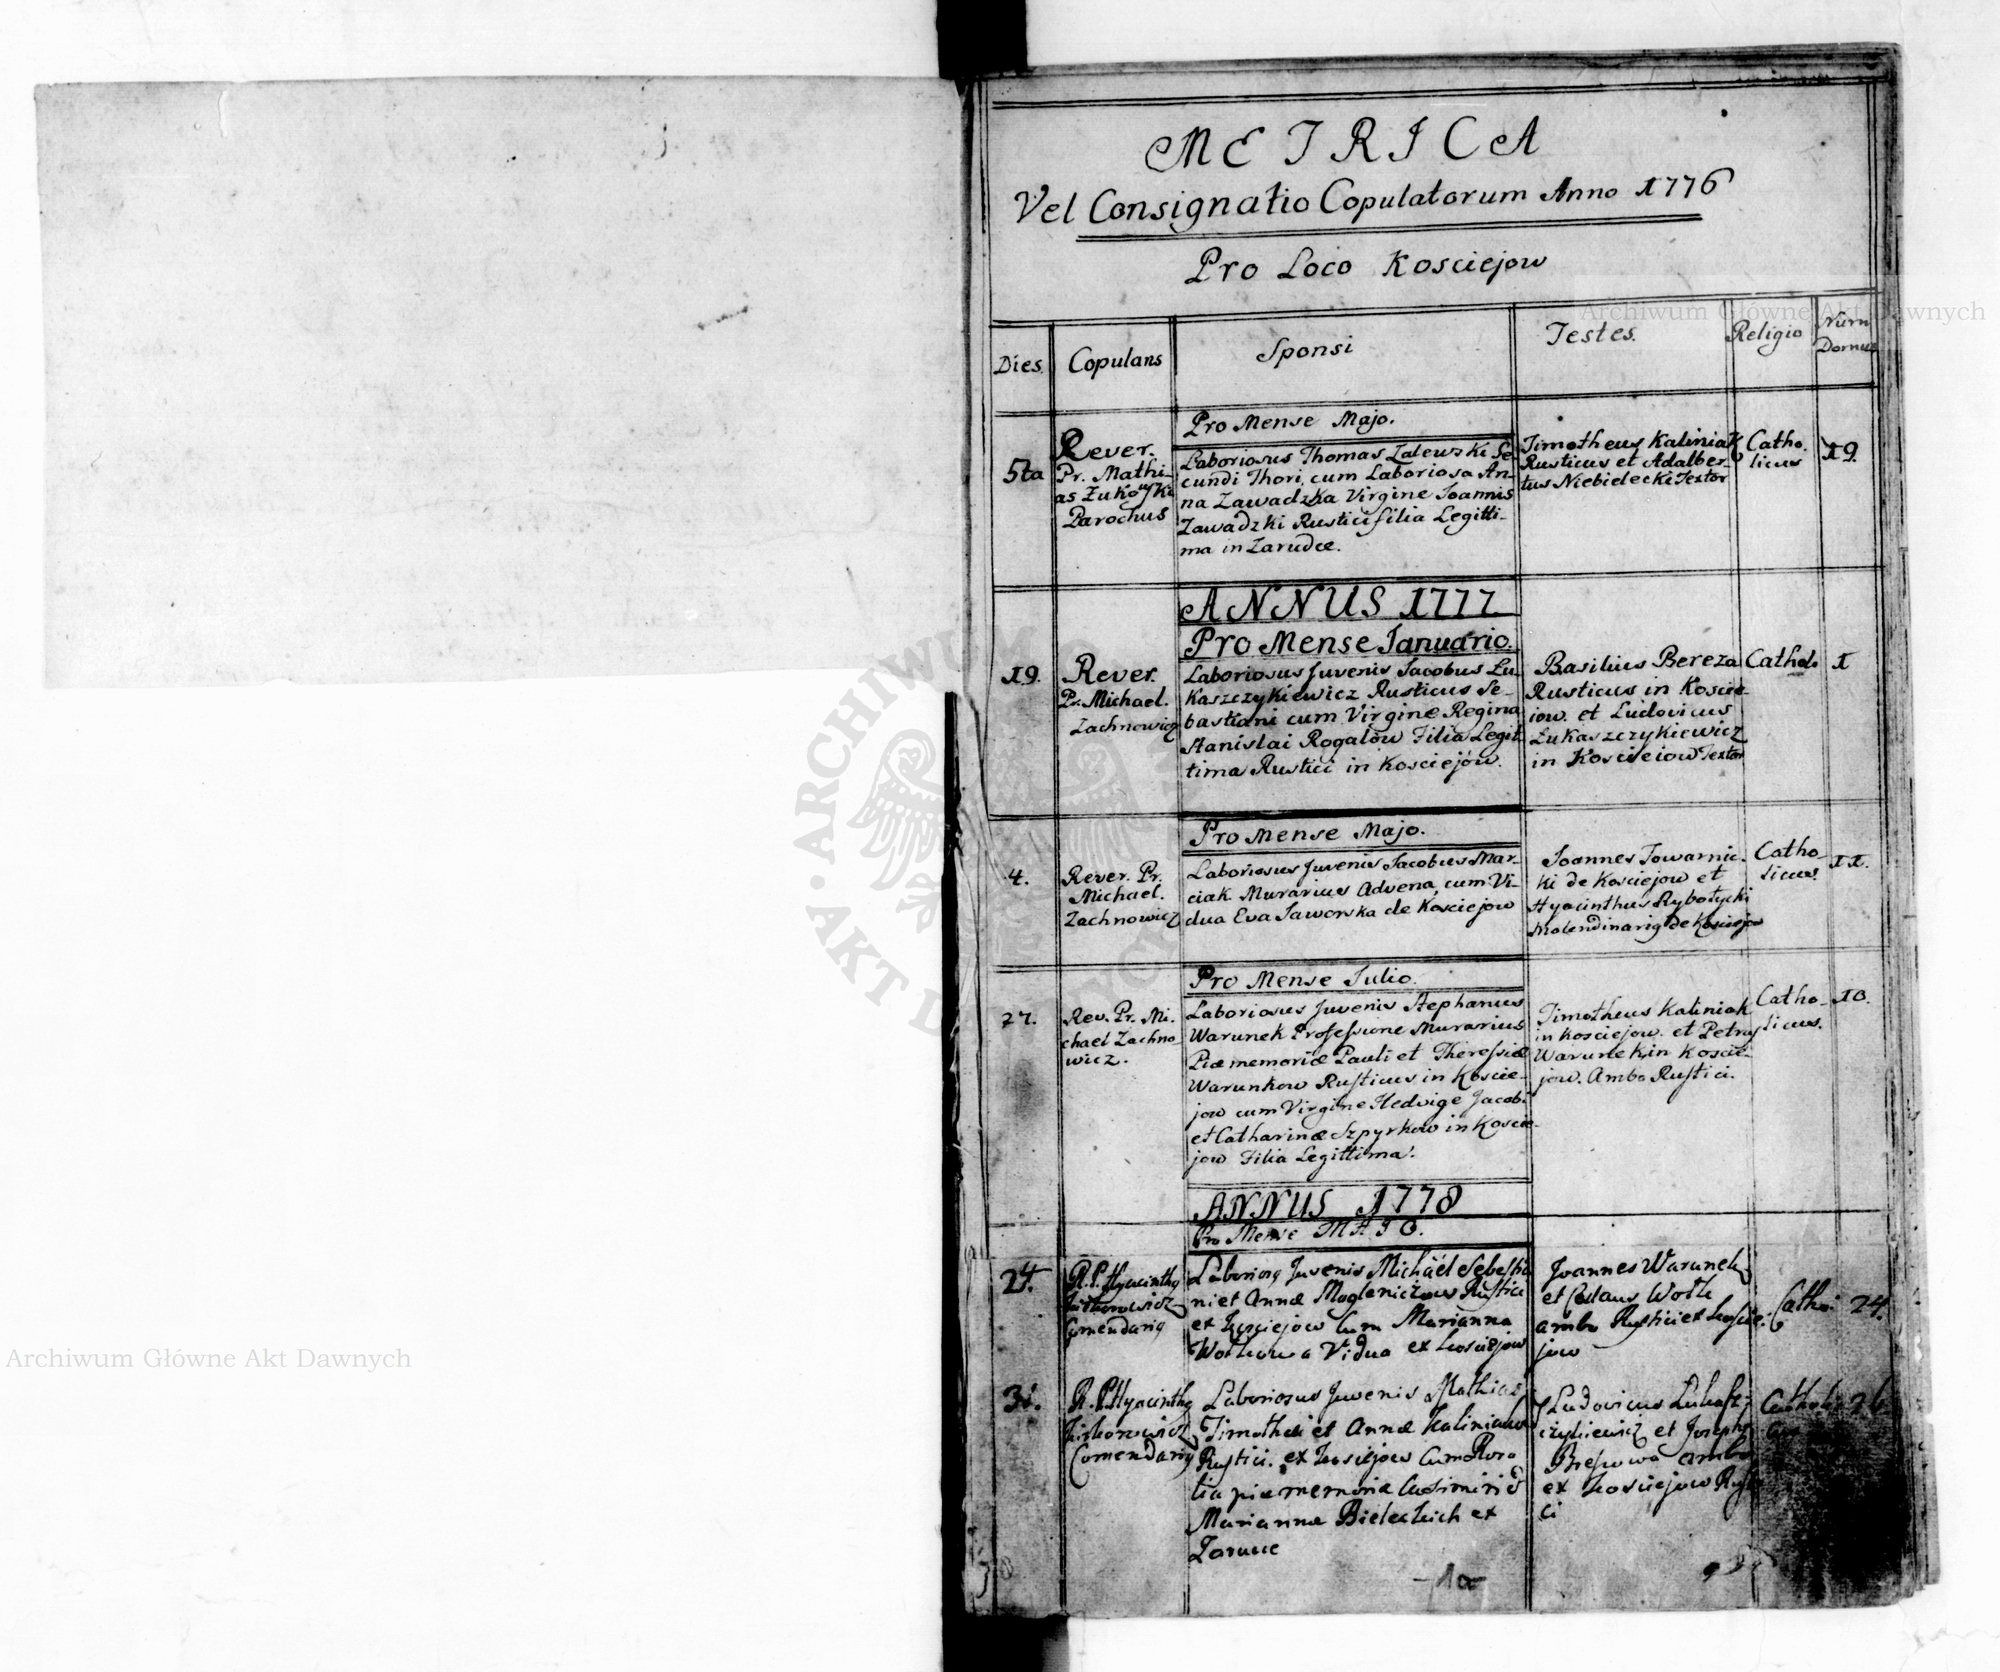 METRICA
Vel Consignatio Copulatorum Anno 1776
Pro Loco Kosciejow
Dies.
Copulans
Sponsi
Testes.
Religio
Num
Domus
Pro Mense Majo.
5ta
Rever.
Pr. Mathi-
as Żukowski
Parochus
Laboriosus Thomas Zalewski Se-
cundi Thori, cum Laboriosa An-
na Zawadzka Virgine Joannis
Zawadzki Rustici filia Legitti-
ma in Zarudce.
Timotheus Kaliniak
Rusticus et Adalber-
tus Niebielecki Textor
Catho
licus
19.
ANNUS 1777
Pro Mense Januario.
19.
Rever.
Pr. Michael.
Zachnowicz
Laboriosus Juvenis Jacobus Lu-
kaszczykiewicz Rusticus Se-
bastiani cum Virgine Regina
Stanislai Rogalow Filia Legit-
tima Rustici in Kosciejow.
Basilius Bereza
Rusticus in Koscie-
iow. et Ludovicus
Łukaszczykiewicz
in Kościeiow Textor
Cathol
1
Pro Mense Majo.
4.
Rever. Pr.
Michael.
Zachnowicz
Laboriosus Juvenis Jacobus Mar-
ciak Murarius Advena, cum Vi-
dua Eva Jaworska de Kosciejow
Joannes Towarnic-
ki de Kosciejow et
Hyacinthus Rybołycki
Molendinariq de Kosciejow
Catho-
licus.
11.
Pro Mense Julio.
27.
Rev. Pr. Mi-
chael Zachno-
wicz.
Laboriosus Juvenis Stephanus
Warunek Professione Murarius
Piæ memoriæ Pauli et Theressiæ
Warunkow Rusticus in Koscie-
jow cum Virgine Hedvige Jacobi
et Catharinæ Szpyrkow in Koscie-
jow Filia Legittima.
Timotheus Kaliniak
in Kosciejow. et Petrus
Warunek in Koscie-
jow. Ambo Rustici.
Catho-
licus.
10.
ANNUS 1778
Pro Mense MAJO.
24.
R. P. Hyacinthq
Comendariq
Laboriosq Juvenis Michaël Sebestia
ni et Annæ Rustici
ex Kosciejow cum Marianna
a Vidua ex Kosciejow
Joannes Warunek
et Woth
ambo Rustici ex Koscie-
jow
Catho:
24.
31.
R. P. Hyacinthq
Comendariq
Laboriosus Juvenis Mathias
Timothei et Annæ Kaliniakow
Rustici. ex Kosciejow cum Roro
lia piæ memoriæ Casimiri et
Mariannæ Bieleckich ex
Zarucce
Ludovicus Lukasz-
czykiewicz et Joseph
ambo
ex Kosciejow Rusti
ci
Catholi
26
-1a-
Archiwum Główne Akt Dawnych
Archiwum Główne Akt Dawnych
ARCHIWUM
AKT DAWNYCH